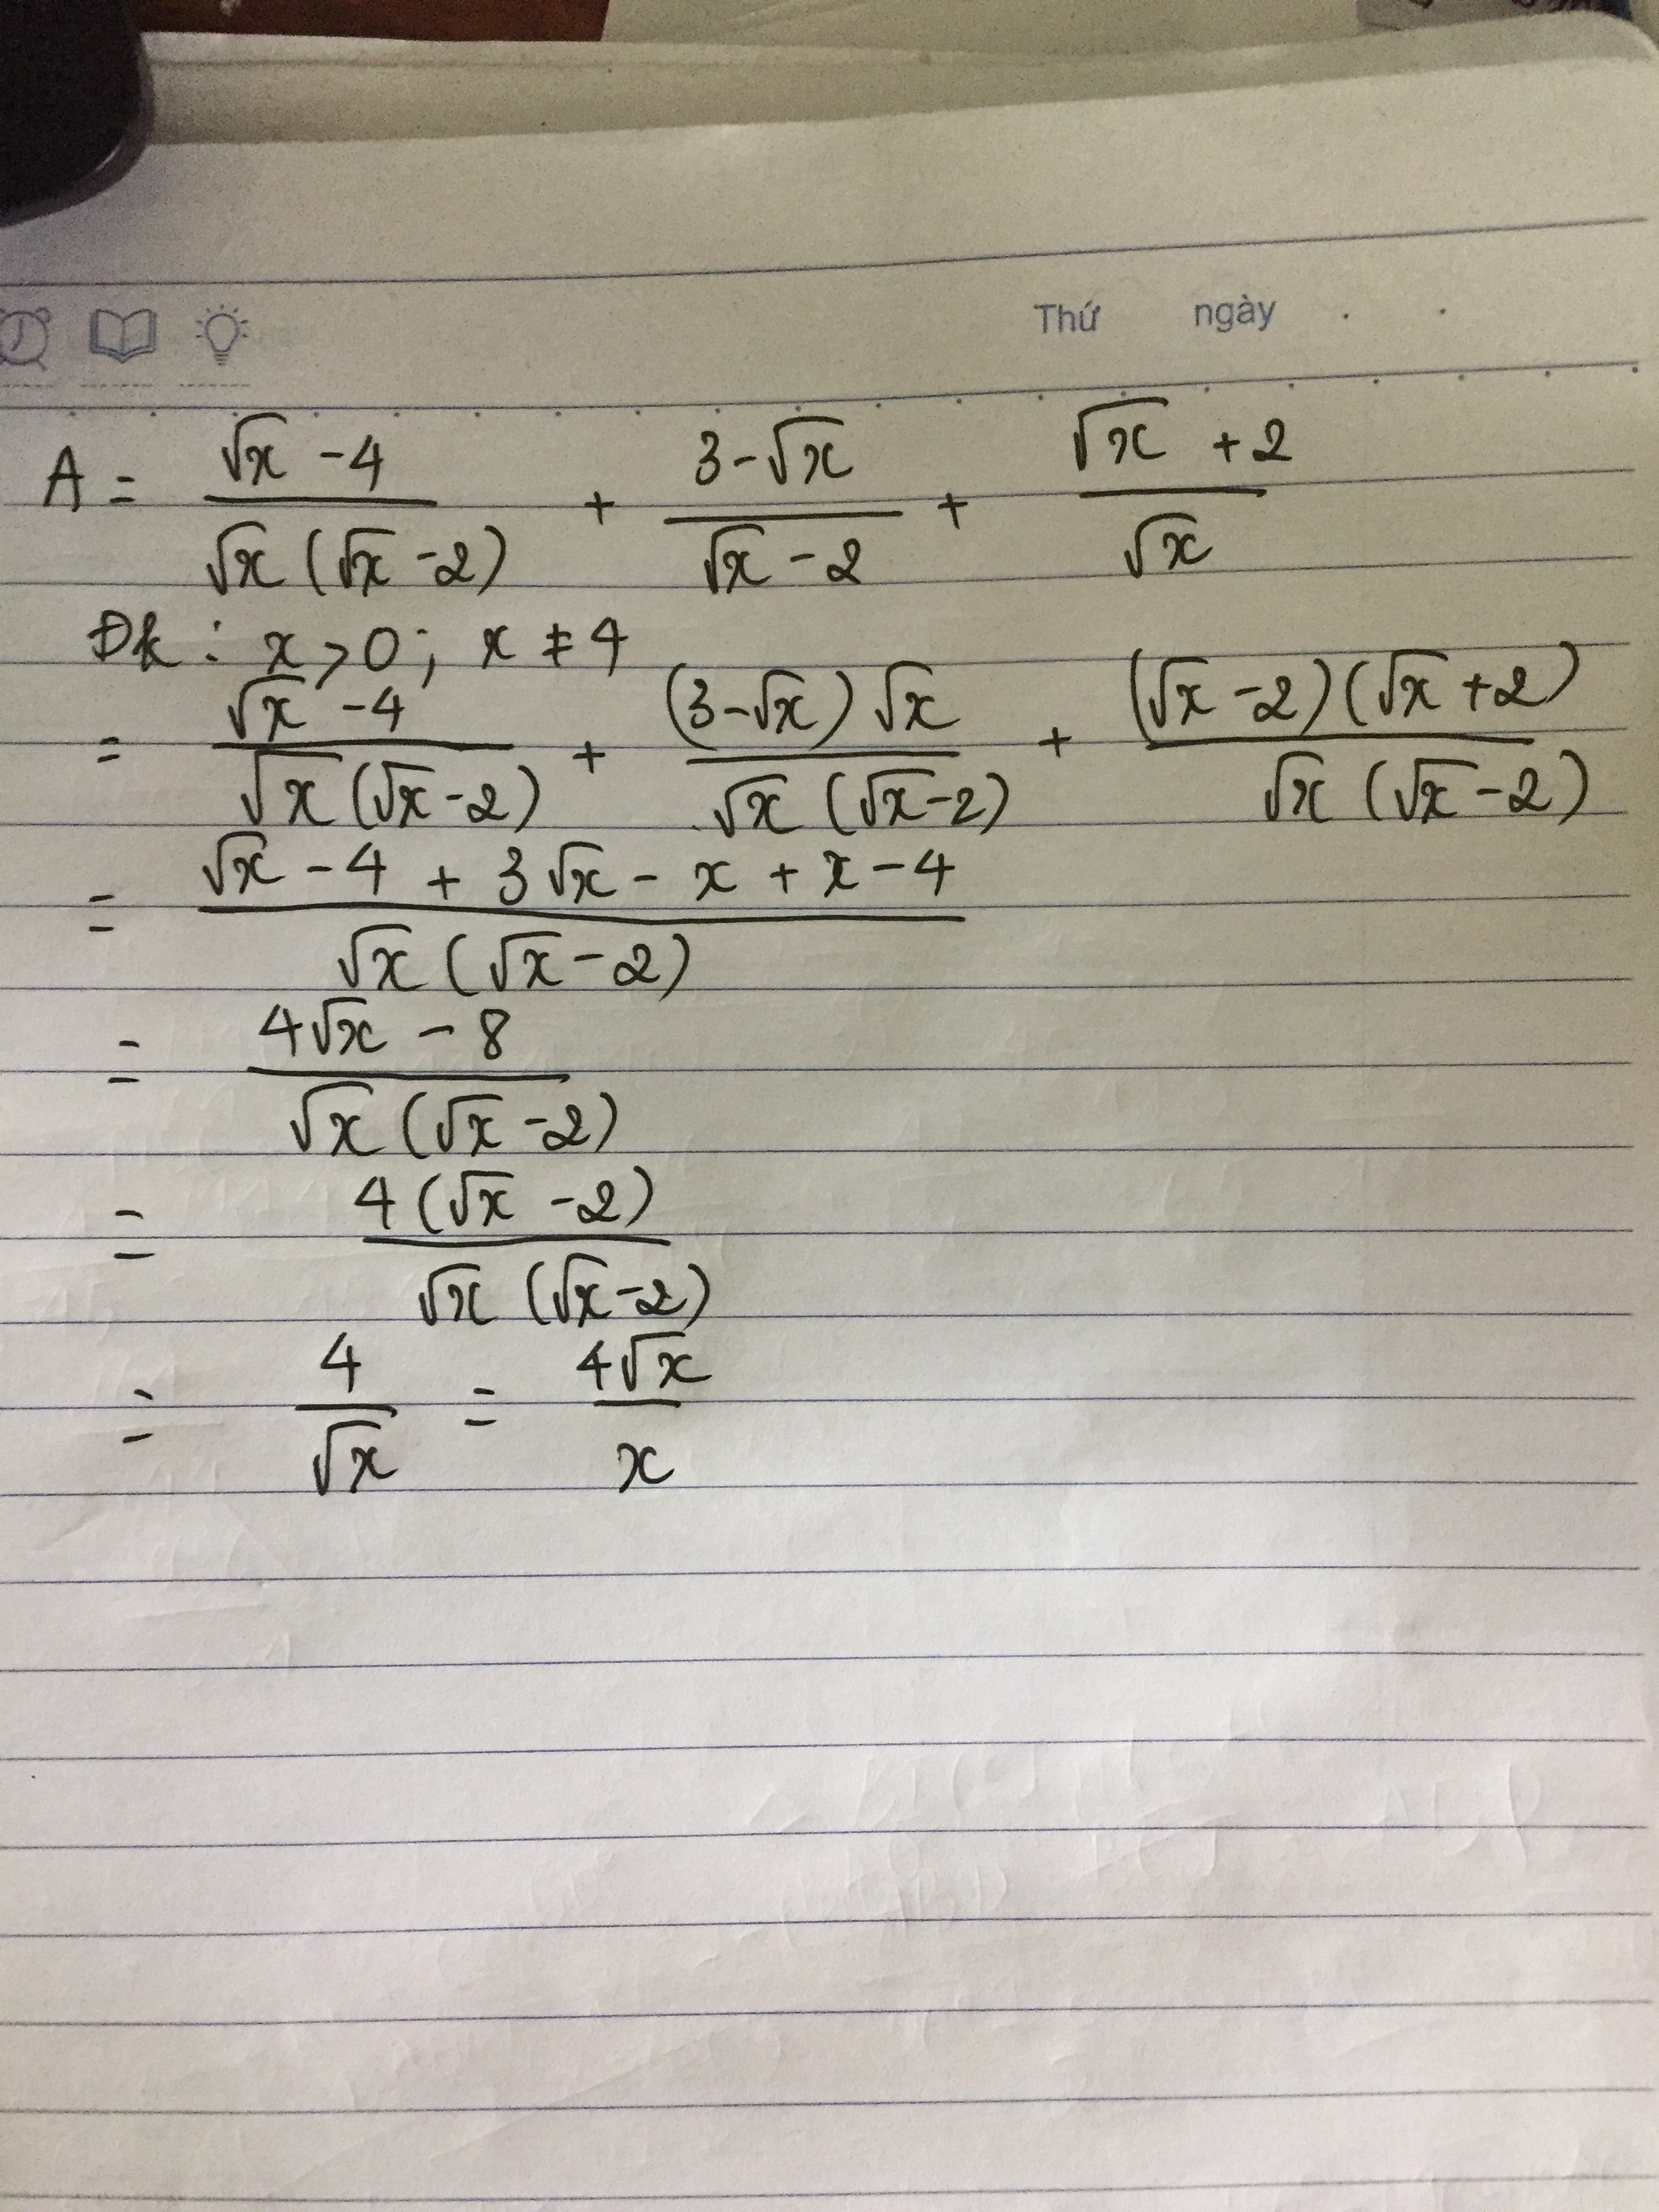 Thứ ngày
A = (√x - 4)/(√x(√x - 2)) + (3 - √x)/(√x - 2) + (√x + 2)/√x
Đk : x > 0 ; x ≠ 4
= (√x - 4)/(√x(√x - 2)) + ((3 - √x)√x)/(√x(√x - 2)) + ((√x - 2)(√x + 2))/(√x(√x - 2))
= (√x - 4 + 3√x - x + x - 4)/(√x(√x - 2))
= (4√x - 8)/(√x(√x - 2))
= (4(√x - 2))/(√x(√x - 2))
= 4/√x = 4√x/x